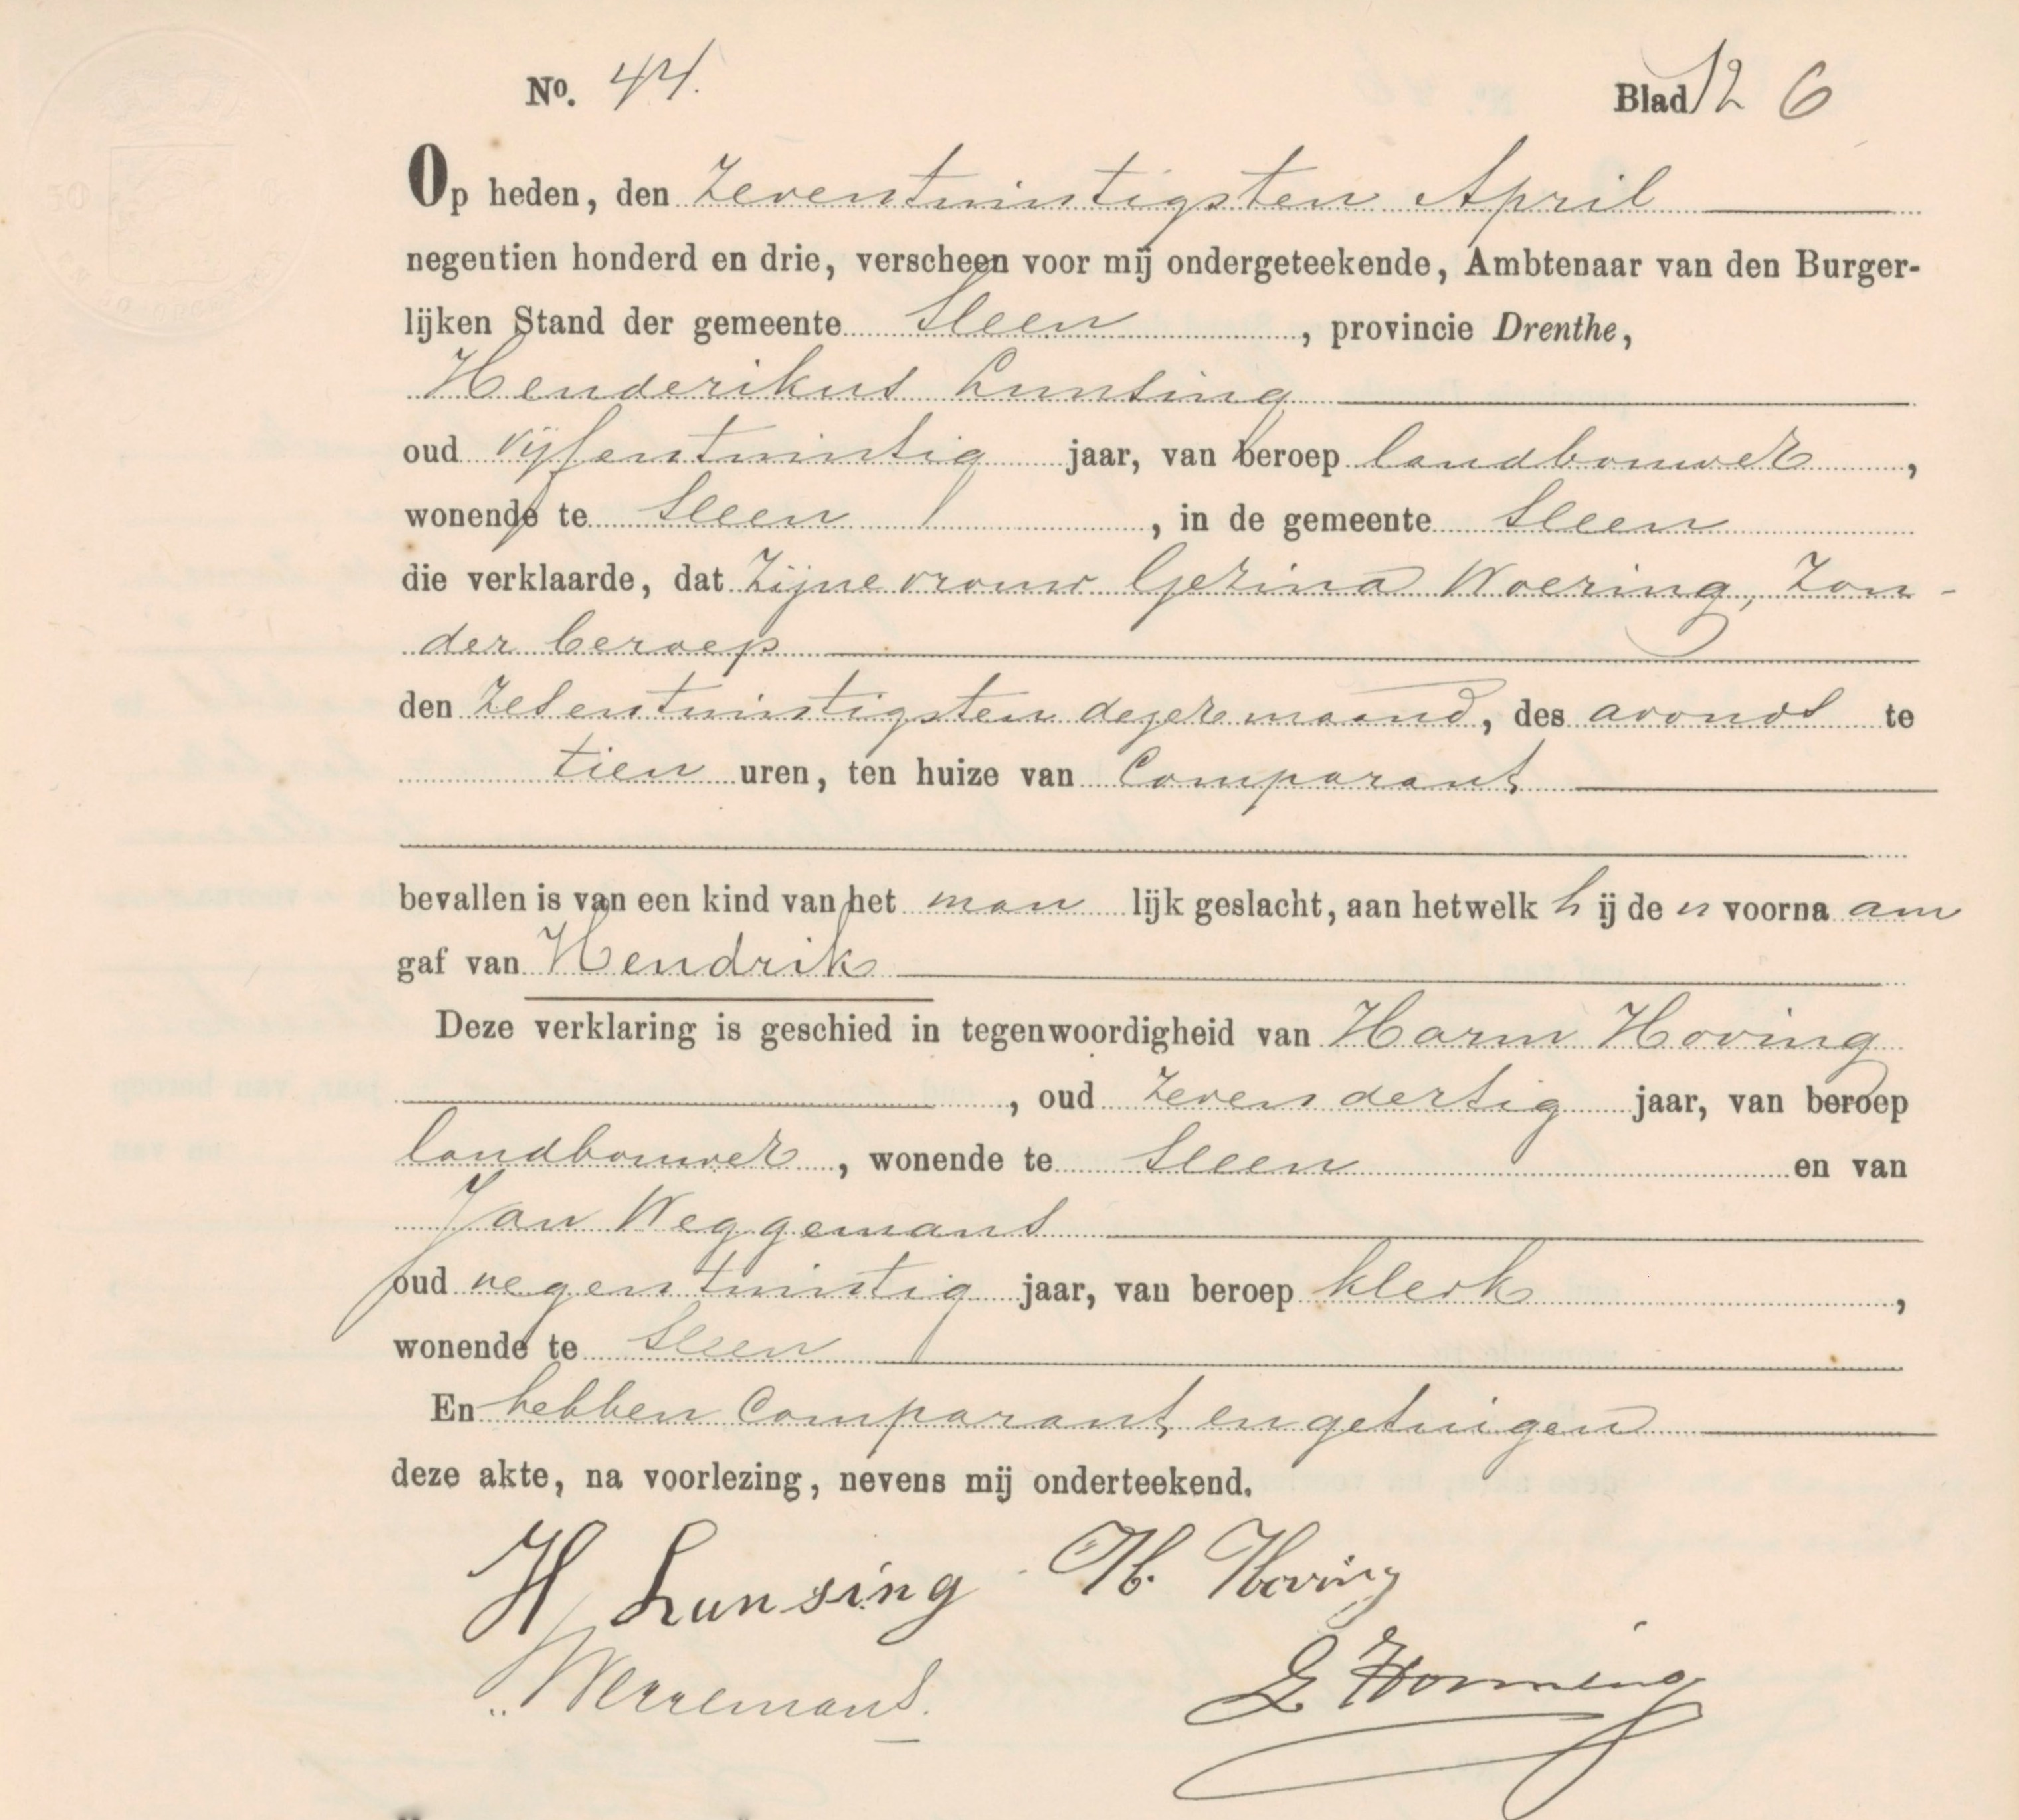 No. 44. Blad 12 6
Op heden, den zeventwintigsten April
negentien honderd en drie, verscheen voor mij ondergeteekende, Ambtenaar van den Burger-
lijken Stand der gemeente Sleen, provincie Drenthe,
Henderikus Lunsing
oud vijfentwintig jaar, van beroep landbouwer,
wonende te Sleen, in de gemeente Sleen
die verklaarde, dat zijne vrouw Gezina Woering, zon-
der beroep
den zesentwintigsten dezer maand, des avonds te
tien uren, ten huize van Comparant
bevallen is van een kind van het man lijk geslacht, aan hetwelk h ij de n voorna am
gaf van Hendrik
Deze verklaring is geschied in tegenwoordigheid van Harm Hoving
, oud zevendertig jaar, van beroep
landbouwer, wonende te Sleen en van
Jan Weggemans
oud negentwintig jaar, van beroep klerk,
wonende te Sleen
En hebben Comparant en getuigen
deze akte, na voorlezing, nevens mij onderteekend.
H Lunsing H. Hoving
Weggemans.